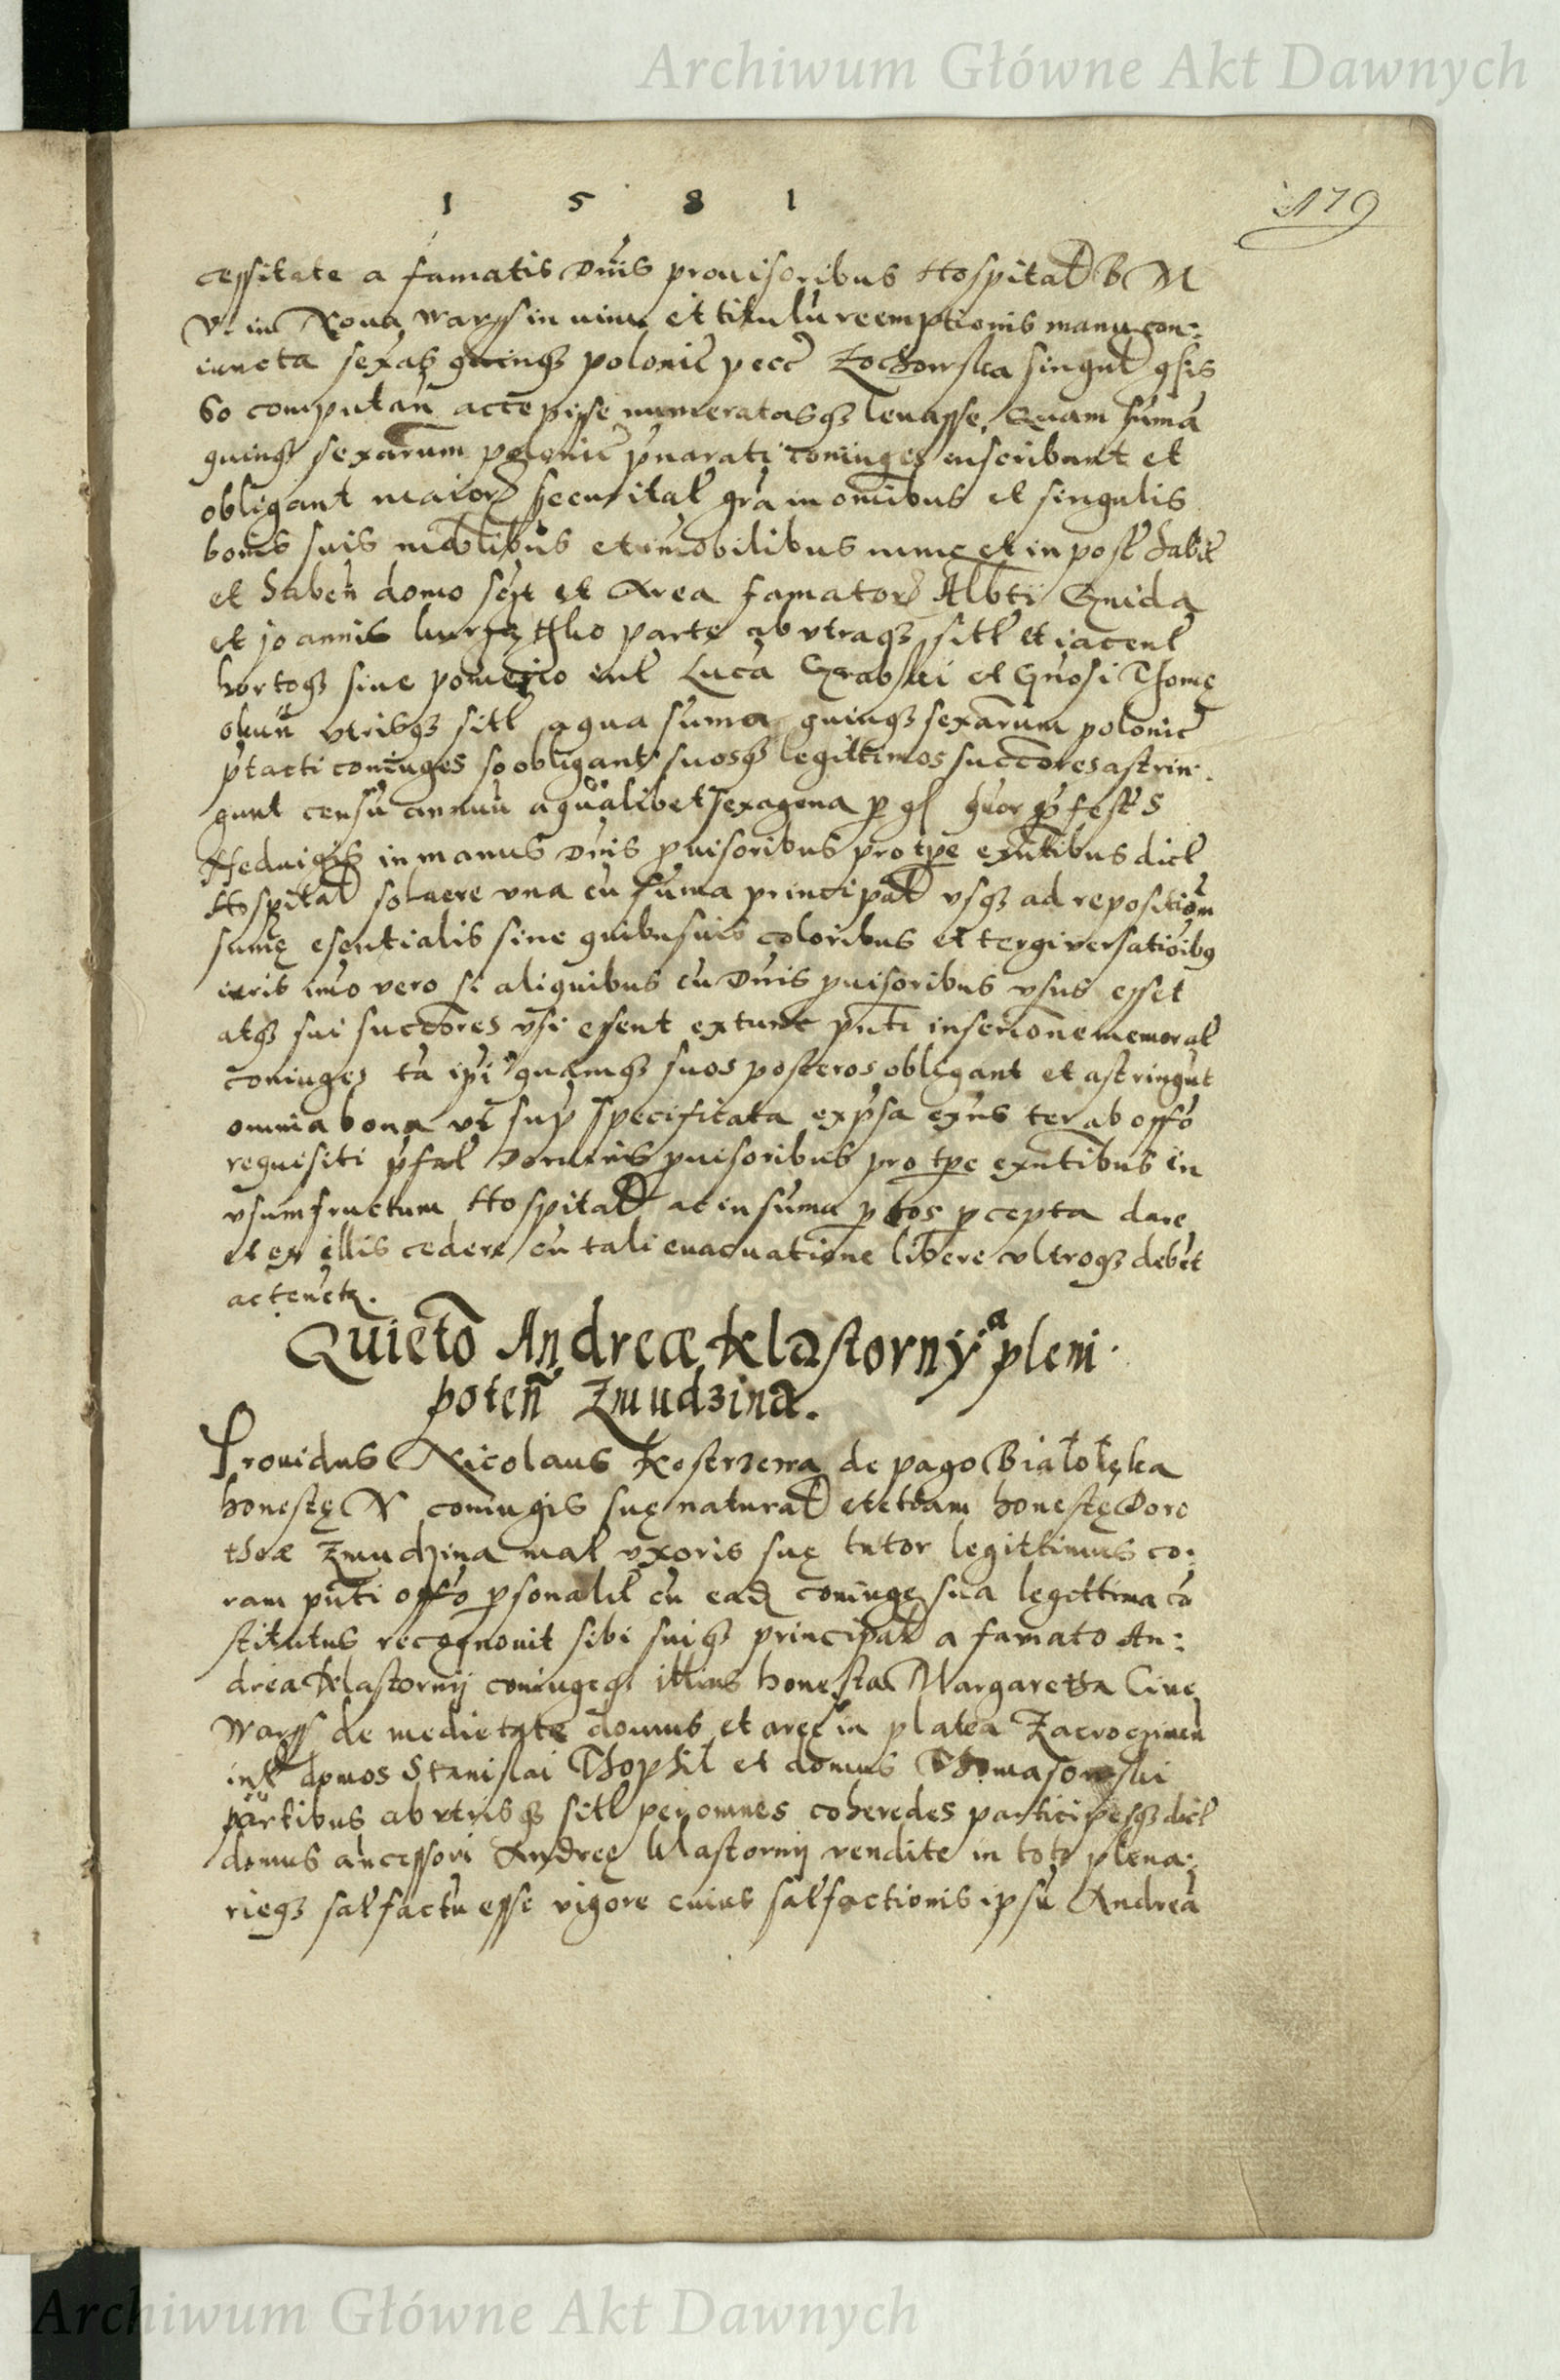 Archiwum Główne Akt Dawnych
1 5 8 1
179
cessitate a famatis Dnis prouisoribus Hospital B M
V. in Noua Warss in uim et titulu reemptionis manu con:
iuncta sexag quinq polonic pecc singul gsis
60 computan accepisse numeratasq leuasse. Quam suma
quinq sexarum polonic pnarati coniuges inscribunt et
obligant maior securitat gra in omibus et singulis
bonis suis moblibus et imobilibus nunc et in post habit
et haben domo sept et Area famator Albti Gnida
et joannis parte ab vtraq sitt et iacent
hortoq siue pomerio int Luca Grabski et Gnosi Thomę
vtribq sitt a qua suma quinq sexarum polonic
ptacti coniuges so obligant suosq legittimos succores astrin.
gunt censu annuu a qualibet sexagena p gl quor p fest S
Heduigis in manus Dnis puisoribus pro tpe exntibus dict
Hospital soluere vna cu suma principal vsq ad repositiom
sumę esentialis sine quibusuis coloribus et tergiuersatioibq
iuris imo vero si aliquibus cu Dnis puisoribus vsus esset
atq sui succores vsi essent extunc pnti inscrione memorat
coniuges ta ipi quamq suos posteros obligant et astringut
omnia bona vt sup specificata expsa exns ter ab offo
requisiti pfat Dominis puisoribus pro tpe exntibus in
vsumfructum Hospital ac in suma p hos pcepta dare
et ex illis cedere cu tali euacuatione libere vltroq debet
ac tenetr.
Quieto Andreæ Klastorny a pleni.
poten Zmudzina.
Prouidus Nicolaus Kostrzewa de pago Białołęka
honestę N coniugis suę natural et etiam honestę Doro
theæ Zmudzina mat vxoris suę tutor legittimus co:
ram pnti offo psonalit cu ead coniuge sua legittima co
stitutus recognouit sibi suisq principal a famato An:
drea Klastornij coniugeq illius honesta Margaretha Ciue
Warss de medietate domus et areę in platea Zacroczimen
int domos Stanislai Thophil et domus Thomasowski
partibus ab vtrisq sitt per omnes coheredes participesq dict
domus ancessori Andreę Klastornij vendite in toto plena:
rieq satfactu esse vigore cuius satfactionis ipsu Andrea
Archiwum Główne Akt Dawnych